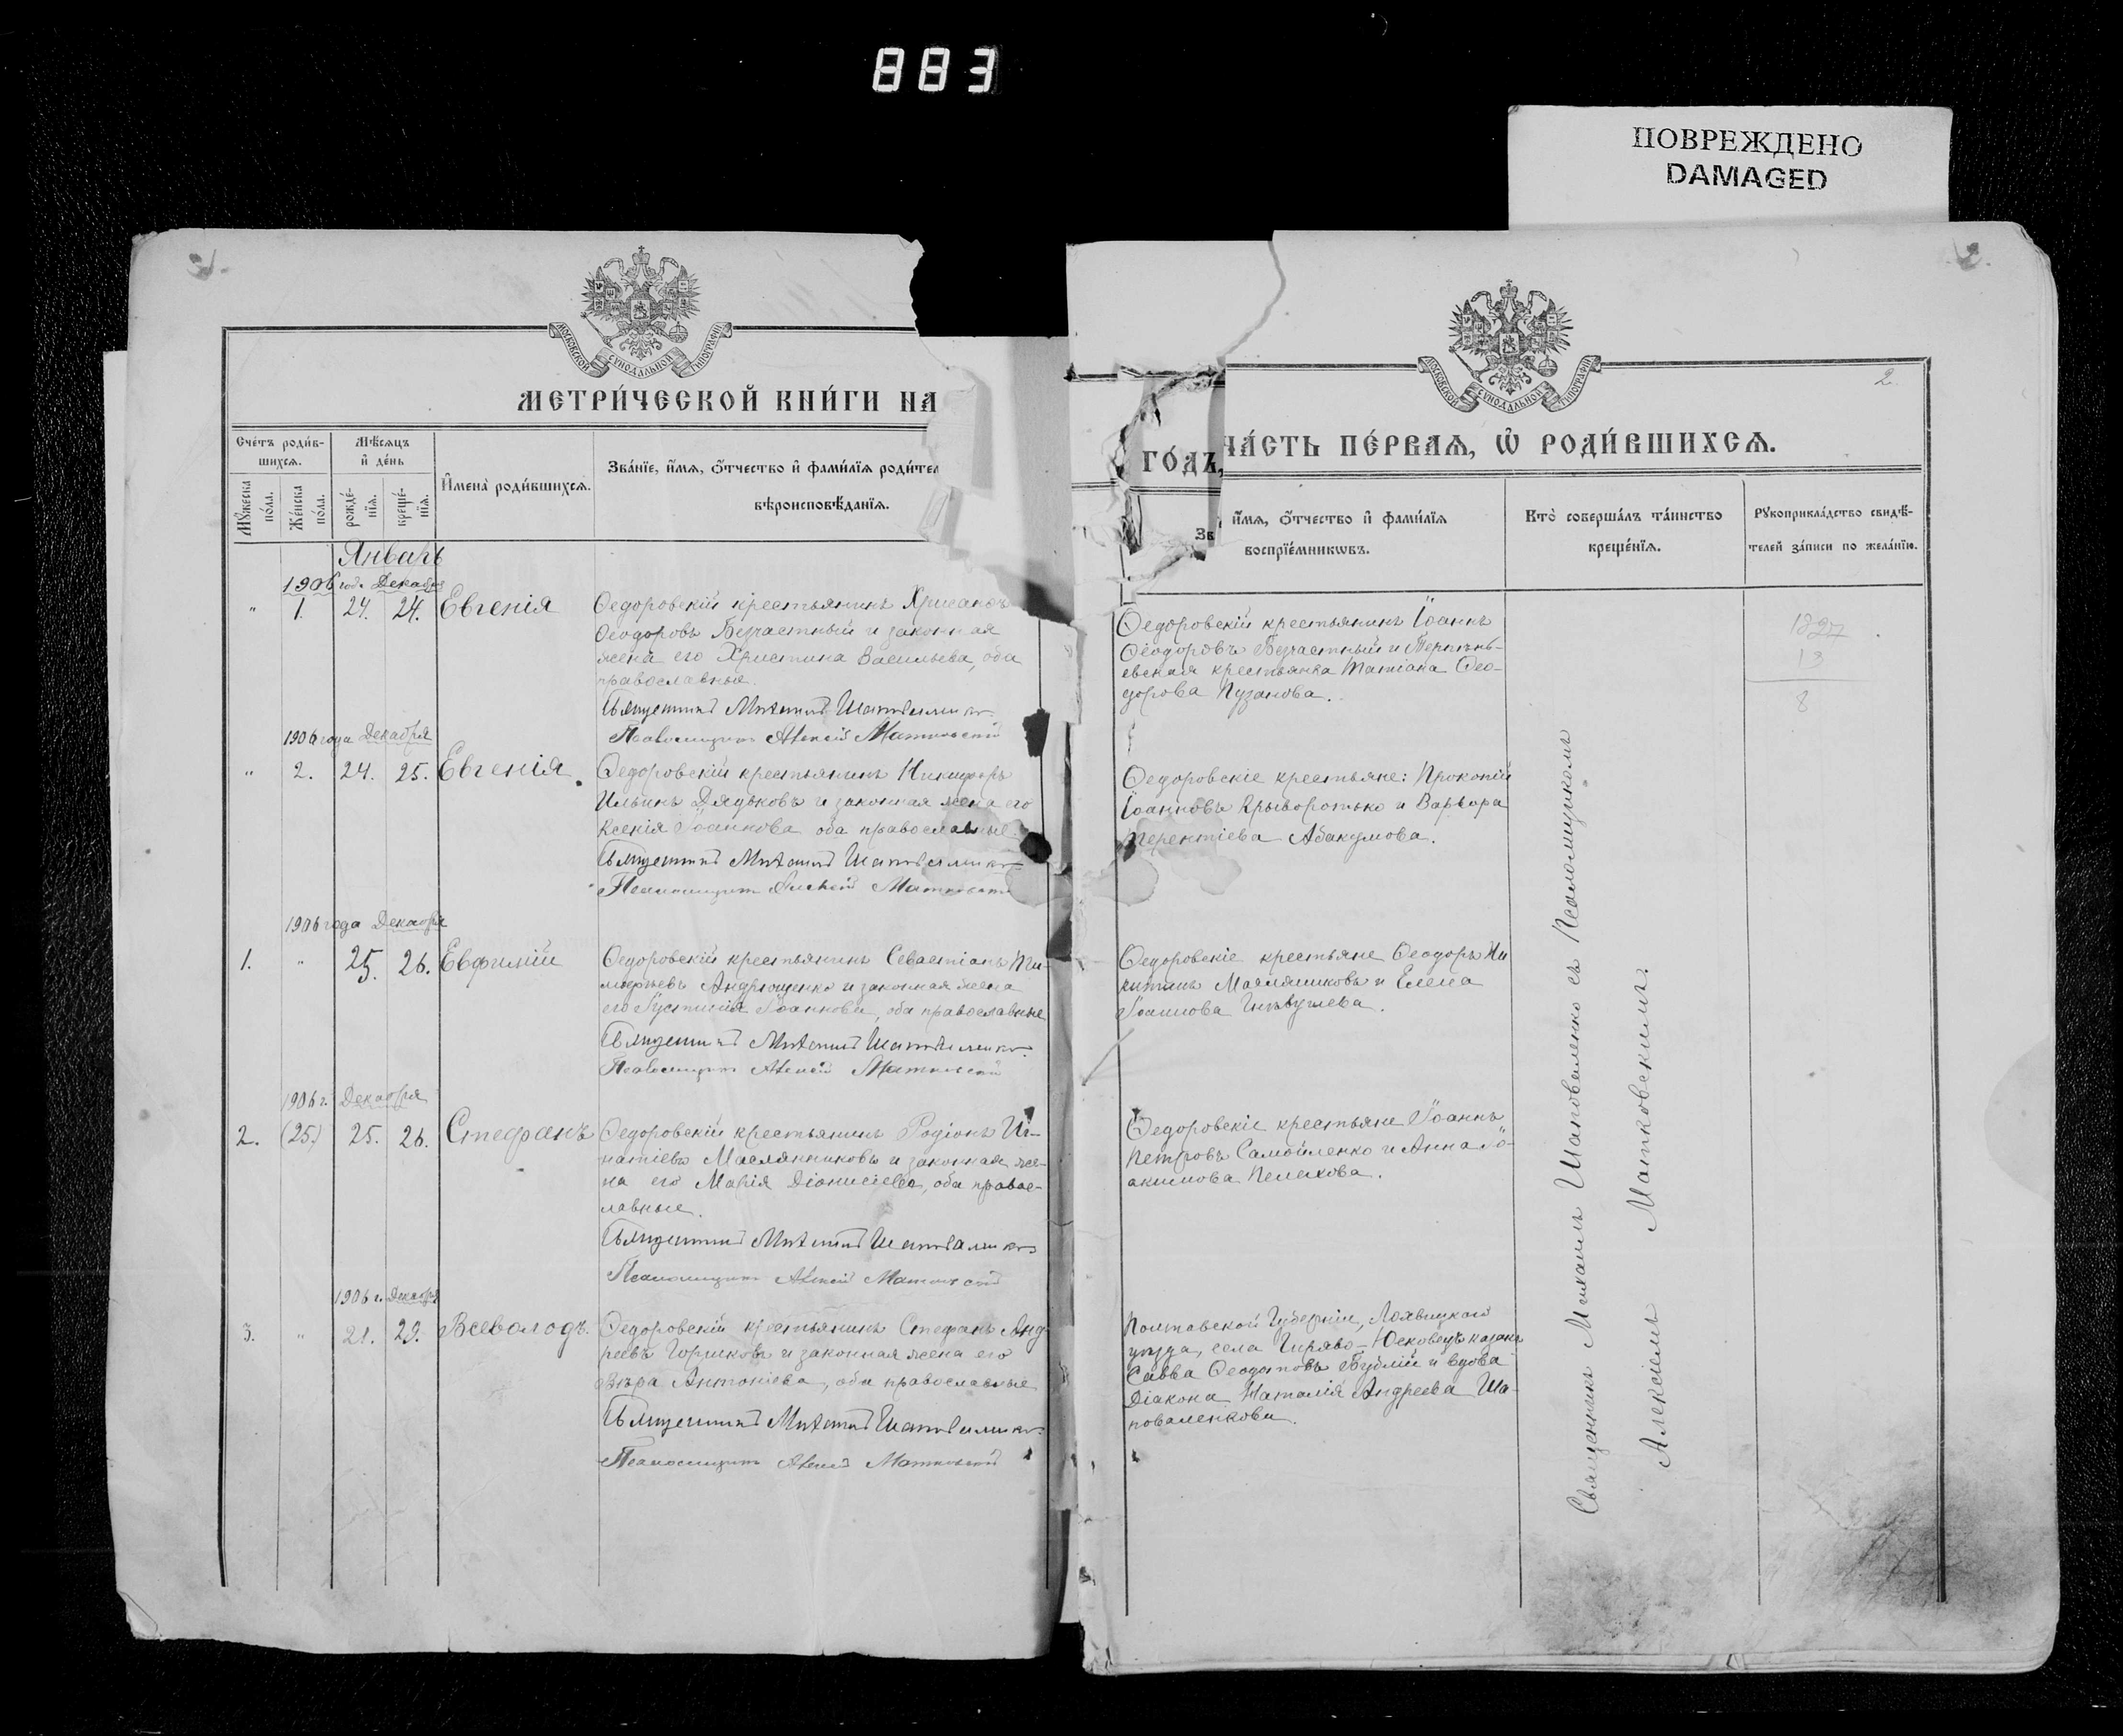 883
ПОВРЕЖДЕНО
DAMAGED
МОСКОВСКОЙ СУНОДАЛЬНОЙ ТИПОГРАФІИ
МЕТРИ́ЧЕСКОЙ КНИ́ГИ НА
Сче́тъ роди́в-
шихсѧ.
Мѣ́сѧцъ
и҆ де́нь
Мꙋ́жеска по́ла.
Же́нска по́ла.
рожде́-
нїѧ.
креще́-
нїѧ.
И҆мена̀ роди́вшихсѧ.
Зва́нїе, и҆́мѧ, ѻ҆́тчество и҆ фами́лїѧ роди́тел
вѣроисповѣ́данїѧ.
Январь
1906 год. Декабря
" 1. 24. 24. Евгенія
Ѳедоровскій крестьянинъ Хрисанѳъ
Ѳеодоровъ Безчастный и законная
жена его Христина Васильева, оба
православные.
Священникъ Михаилъ Шаповаленко
Псаломщикъ Алексій Матковскій
1906 года Декабря
" 2. 24. 25. Евгенія.
Ѳедоровскій крестьянинъ Никифоръ
Ильинъ Дядьковъ и законная жена его
Ксенія Іоаннова оба православные
Священникъ Михаилъ Шаповаленко
Псаломщикъ Алексій Матковскій
1906 года Декабря
1. " 25. 26. Евфимій
Ѳедоровскій крестьянинъ Севастіанъ
Андрющенко и законная жена
его Іустинія Іоаннова, оба православные
Священникъ Михаилъ Шаповаленко
Псаломщикъ Алексій Матковскій
1906 г. Декабря
2. (25.) 25. 26. Стефанъ
Ѳедоровскій крестьянинъ Родіонъ Иг-
натіевъ Маслянниковъ и законная же-
на его Марія Діонисіева, оба право-
славные.
Священникъ Михаилъ Шаповаленко
Псаломщикъ Алексій Матковскій
1906 г. Декабря
3. " 21. 29. Всеволодъ.
Ѳедоровскій крестьянинъ Стефанъ Анд-
реевъ Горшковъ и законная жена его
Вѣра Антоніева, оба православные
Священникъ Михаилъ Шаповаленко
Псаломщикъ Алексій Матковскій
2.
МОСКОВСКОЙ СУНОДАЛЬНОЙ ТИПОГРАФІИ
2.
ГО́ДЪ, ЧА́СТЬ ПЕ́РВАѦ, Ѡ҆ РОДИ́ВШИХСѦ.
Зв и҆́мѧ, ѻ҆́тчество и҆ фами́лїѧ
воспрїе́мникѡвъ.
Кто̀ соверша́лъ та́инство
креще́нїѧ.
Рꙋкоприкла́дство свидѣ́-
телей за́писи по жела́нїю.
Ѳедоровскій крестьянинъ Іоаннъ
Ѳеодоровъ Безчастный и Терпѣнь-
евская крестьянка Татіана Ѳео-
дорова Пузанова.
Ѳедоровскіе крестьяне: Прокопій
Іоанновъ Крыворотько и Варвара
Терентіева Абакумова.
Ѳедоровскіе крестьяне Ѳеодоръ Ни
китинъ Маслянниковъ и Елена
Іоаннова
Ѳедоровскіе крестьяне Іоаннъ
Петровъ Самойленко и Анна Іо-
акимова Пелехова.
Полтавской Губерніи, Лохвицкаго
уѣзда, села Гиряво-Юсковецъ казакъ
Савва Ѳеодотовъ Бублій и вдова
Діакона Наталія Андреева Ша-
поваленкова.
Священникъ Михаилъ Шаповаленко съ Псаломщикомъ
Алексіемъ Матковскимъ.
1927
19
8